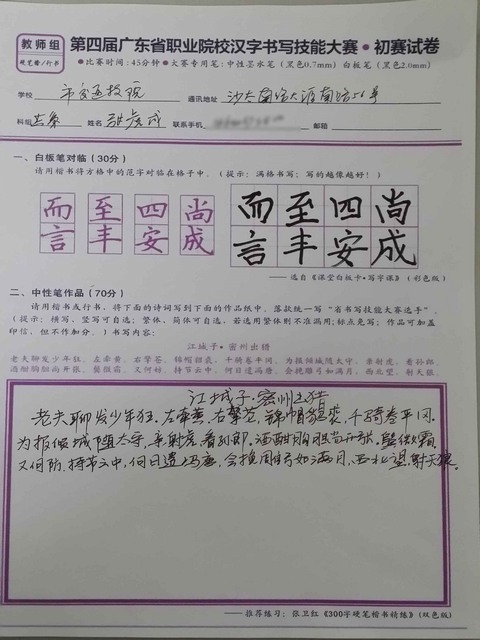 教师组
硬笔楷/行书
第四届广东省职业院校汉字书写技能大赛•初赛试卷
●比赛时间:45分钟●大赛专用笔:中性墨水笔(黑色0.7mm)白板笔(黑色2.0mm)
学校 市交通技院 通讯地址
科组 姓名 张虎成 联系手机 邮箱
一、白板笔对临(30分)
请用楷书将方格中的范字对临在格子中。(提示:满格书写;写的越像越好!)
而至四尚 而至四尚
言丰安成 言丰安成
——选自《课堂白板卡•写字课》(彩色版)
二、中性笔作品(70分)
请用楷书或行书,将下面的诗词写到下面的作品纸中。落款统一写“省书写技能大赛选手”。
(提示:横写、竖写可自选;繁体、简体可自选,若选用繁体则不准混用;标点免写;作品可加盖
印信,但不作加分。)书写内容:
江城子•密州出猎
老夫聊发少年狂,左牵黄,右擎苍,锦帽貂裘,千骑卷平冈。为报倾城随太守,亲射虎,看孙郎。
酒酣胸胆尚开张,鬓微霜,又何妨。持节云中,何日遣冯唐。会挽雕弓如满月,西北望,射天狼。
江城子·密州出猎
老夫聊发少年狂,左牵黄,右擎苍,锦帽貂裘,千骑卷平冈。
为报倾城随太守,亲射虎,看孙郎。酒酣胸胆尚开张,鬓微霜,
又何防,持节云中,何日遣冯唐,会挽雕弓如满月,西北望,射天狼。
——推荐练习:张卫红《300字硬笔楷书精练》(双色版)